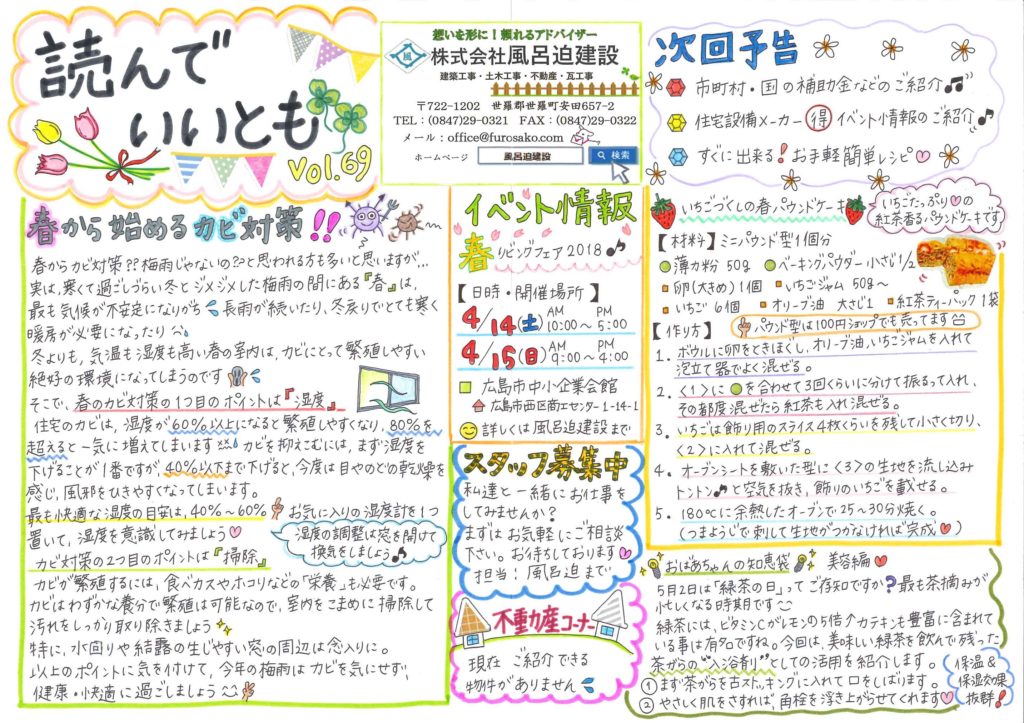 読んで
いいとも
Vol.69
想いを形に！頼れるアドバイザー
株式会社風呂迫建設
建築工事・土木工事・不動産・瓦工事
〒722-1202　世羅郡世羅町安田657-2
TEL：(0847)29-0321　FAX：(0847)29-0322
メール：office@furosako.com
ホームページ　風呂迫建設　検索
次回予告
市町村・国の補助金などのご紹介
住宅設備メーカー得イベント小情報のご紹介
すぐに出来る！お手軽簡単レシピ
春から始めるカビ対策!!
春からカビ対策??梅雨じゃないの??と思われる方も多いと思いますが…
実は、寒くて過ごしづらい冬とジメジメした梅雨の間にある『春』は、
最も気候が不安定になりがち 長雨が続いたり、冬戻りでとても寒く
暖房が必要になったり
冬よりも、気温も湿度も高い春の室内は、カビにとって繁殖しやすい
絶好の環境になってしまうのです
そこで、春のカビ対策の1つ目のポイントは『湿度』
住宅のカビは、湿度が60%以上になると繁殖しやすくなり、80%を
超えると一気に増えてしまいます カビを抑えこむには、まず湿度を
下げることが1番ですが、40%以下まで下げると、今度は目やのどの乾燥を
感じ、風邪をひきやすくなってしまいます。
最も快適な湿度の目安は、40%～60% お気に入りの湿度計を1つ
置いて、湿度を意識してみましょう♡
湿度の調整は窓を開けて
換気をしましょう♪
カビ対策の2つ目のポイントは『掃除』
カビが繁殖するには、食ベカスやホコリなどの「栄養」も必要です。
カビはわずかな養分で繁殖は可能なので、室内をこまめに掃除して
汚れをしっかり取り除きましょう
特に、水回りや結露の生じやすい窓の周辺は念入りに。
以上のポイントに気を付けて、今年の梅雨はカビを気にせず、
健康・快適に過ごしましょう
イベント情報
春リビングフェア2018♪
【日時・開催場所】
4/14(土) AM 10:00～ PM 5:00
4/15(日) AM 9:00～ PM 4:00
広島市中小企業会館
広島市西区商工センター1-14-1
詳しくは風呂迫建設まで
スタッフ募集中
私達と一緒にお仕事を
してみませんか？
まずはお気軽にご相談
下さい。お待ちしております♡
担当：風呂迫まで
不動産コーナー
現在　ご紹介できる
物件がありません
いちごづくしの春パウンドケーキ
いちごたっぷり♡の
紅茶香るパウンドケーキです
【材料】ミニパウンド型1個分
薄力粉 50g　ベーキングパウダー小さじ1/2
卵(大きめ)1個　いちごジャム 50g～
いちご 6個　オリーブ油 大さじ1　紅茶ティーパック1袋
【作り方】 パウンド型は100円ショップでも売ってます
1. ボウルに卵をときほぐし、オリーブ油、いちごジャムを入れて
泡立て器でよく混ぜる。
2. <1>に●を合わせて3回くらいに分けて振るって入れ、
その都度混ぜたら紅茶も入れ混ぜる。
3. いちごは飾り用のスライス4枚くらいを残して小さく切り、
<2>に入れて混ぜる。
4. オーブンシートを敷いた型に<3>の生地を流し込み
トントン♪と空気を抜き、飾りのいちごを載せる。
5. 180℃に余熱したオーブンで25～30分焼く。
(つまようじで刺して生地がつかなければ完成♥)
おばあちゃんの知恵袋　美容編♥
5月2日は「緑茶の日」ってご存知ですか？最も茶摘みが
忙しくなる時期です
緑茶には、ビタミンCがレモンの5倍↑カテキンも豊富に含まれて
いる事は有名ですね。今回は、美味しい緑茶を飲んで残った
茶がらの"入浴剤"としての活用を紹介します。
①まず茶がらを古ストッキングに入れて口をしばります。
②やさしく肌をさすれば、角栓を浮き上がらせてくれます♡
保温＆
保湿効果
抜群！